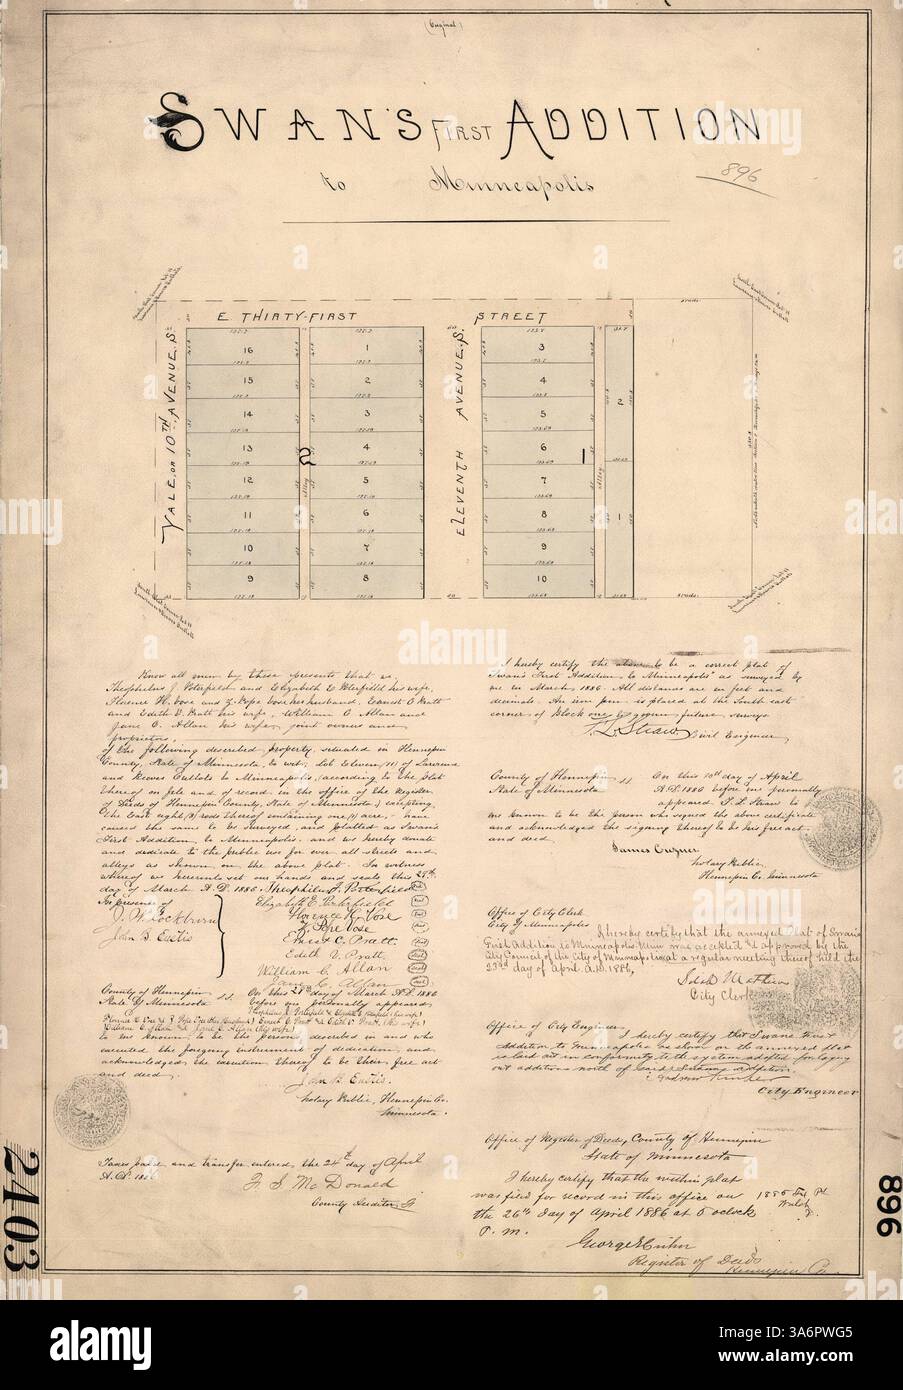 (Original)
SWAN'S FIRST ADDITION
to Minneapolis
896
E THIRTY-FIRST STREET
YALE, OR 10TH AVENUE, S.
ELEVENTH AVENUE, S.
16 1 3
15 2 4
14 3 5 2
13 4 6
2 1
12 5 7
11 6 8 1
10 7 9
9 8 10
Alley
Alley
Know all men by these presents that we,
Theophilus J Poterfield and Elizabeth E Poterfield his wife,
Florence H. Vose and Z. Pope Vose her husband, Ernest C Pratt
and Edith V. Pratt his wife, William C Allan and
Jane C. Allan his wife, joint owners and
proprietors,
of the following described property, situated in Hennepin
County, State of Minnesota, to wit; Lot Eleven (11) of Lawrence
and Reeves Outlots to Minneapolis, (according to the plat
thereof on file and of record in the office of the Register
of Deeds of Hennepin County, State of Minnesota,) excepting
the East eight (8) rods thereof containing one (1) acre, have
caused the same to be surveyed, and platted as Swan's
First Addition, to Minneapolis, and we hereby donate
and dedicate to the public use for ever all streets and
alleys as shown on the above plat. In witness
whereof we hereunto set our hands and seals this 25th
day of March A.D. 1886.
In presence of
John B. Eustis
Theophilus J. Poterfield
Elizabeth E. Poterfield
Florence H. Vose
Z. Pope Vose
Ernest C. Pratt.
Edith V. Pratt.
William C. Allan
Jane C. Allan
County of Hennepin
State of Minnesota ss.
On this day of March A.D. 1886
before me personally appeared,
to me known to be the persons described in and who
executed the foregoing instrument of dedication, and
acknowledged the execution thereof to be their free act
and deed.
John B. Eustis.
Notary Public, Hennepin Co.
Minnesota.
Taxes paid and transfer entered, the 24th day of April
A.D. 1886
F. S. McDonald
County Auditor
I hereby certify the above to be a correct plat of
Swan's First Addition to Minneapolis as surveyed by
me in March, 1886. All distances are in feet and
decimals. An iron pin is placed at the South east
corner of Block one to govern future surveys
Civil Engineer
County of Hennepin
State of Minnesota ss.
On this 10th day of April
A.D. 1886 before me personally
appeared to
me known to be the person who signed the above certificate
and acknowledged the signing thereof to be his free act
and deed.
James
Notary Public
Hennepin Co., Minnesota
Office of City Clerk
City of Minneapolis
I hereby certify that the annexed plat of Swan's
First Addition to Minneapolis Minn was accepted and approved by the
City Council of the City of Minneapolis at a regular meeting thereof held the
23rd day of April A.D. 1886,
City Clerk
Office of City Engineer,
I hereby certify that Swan's First
Addition to Minneapolis as shown on the annexed plat
is laid out in conformity to the system adopted for laying
out additions
City Engineer
Office of Register of Deeds, County of Hennepin
State of Minnesota
I hereby certify that the within plat
was filed for record in this office on
the 26th day of April 1886 at 5 o'clock
P. M.
Register of Deeds
Hennepin Co.
2403
896
alamy
Image ID: 3A6PWG5
www.alamy.com